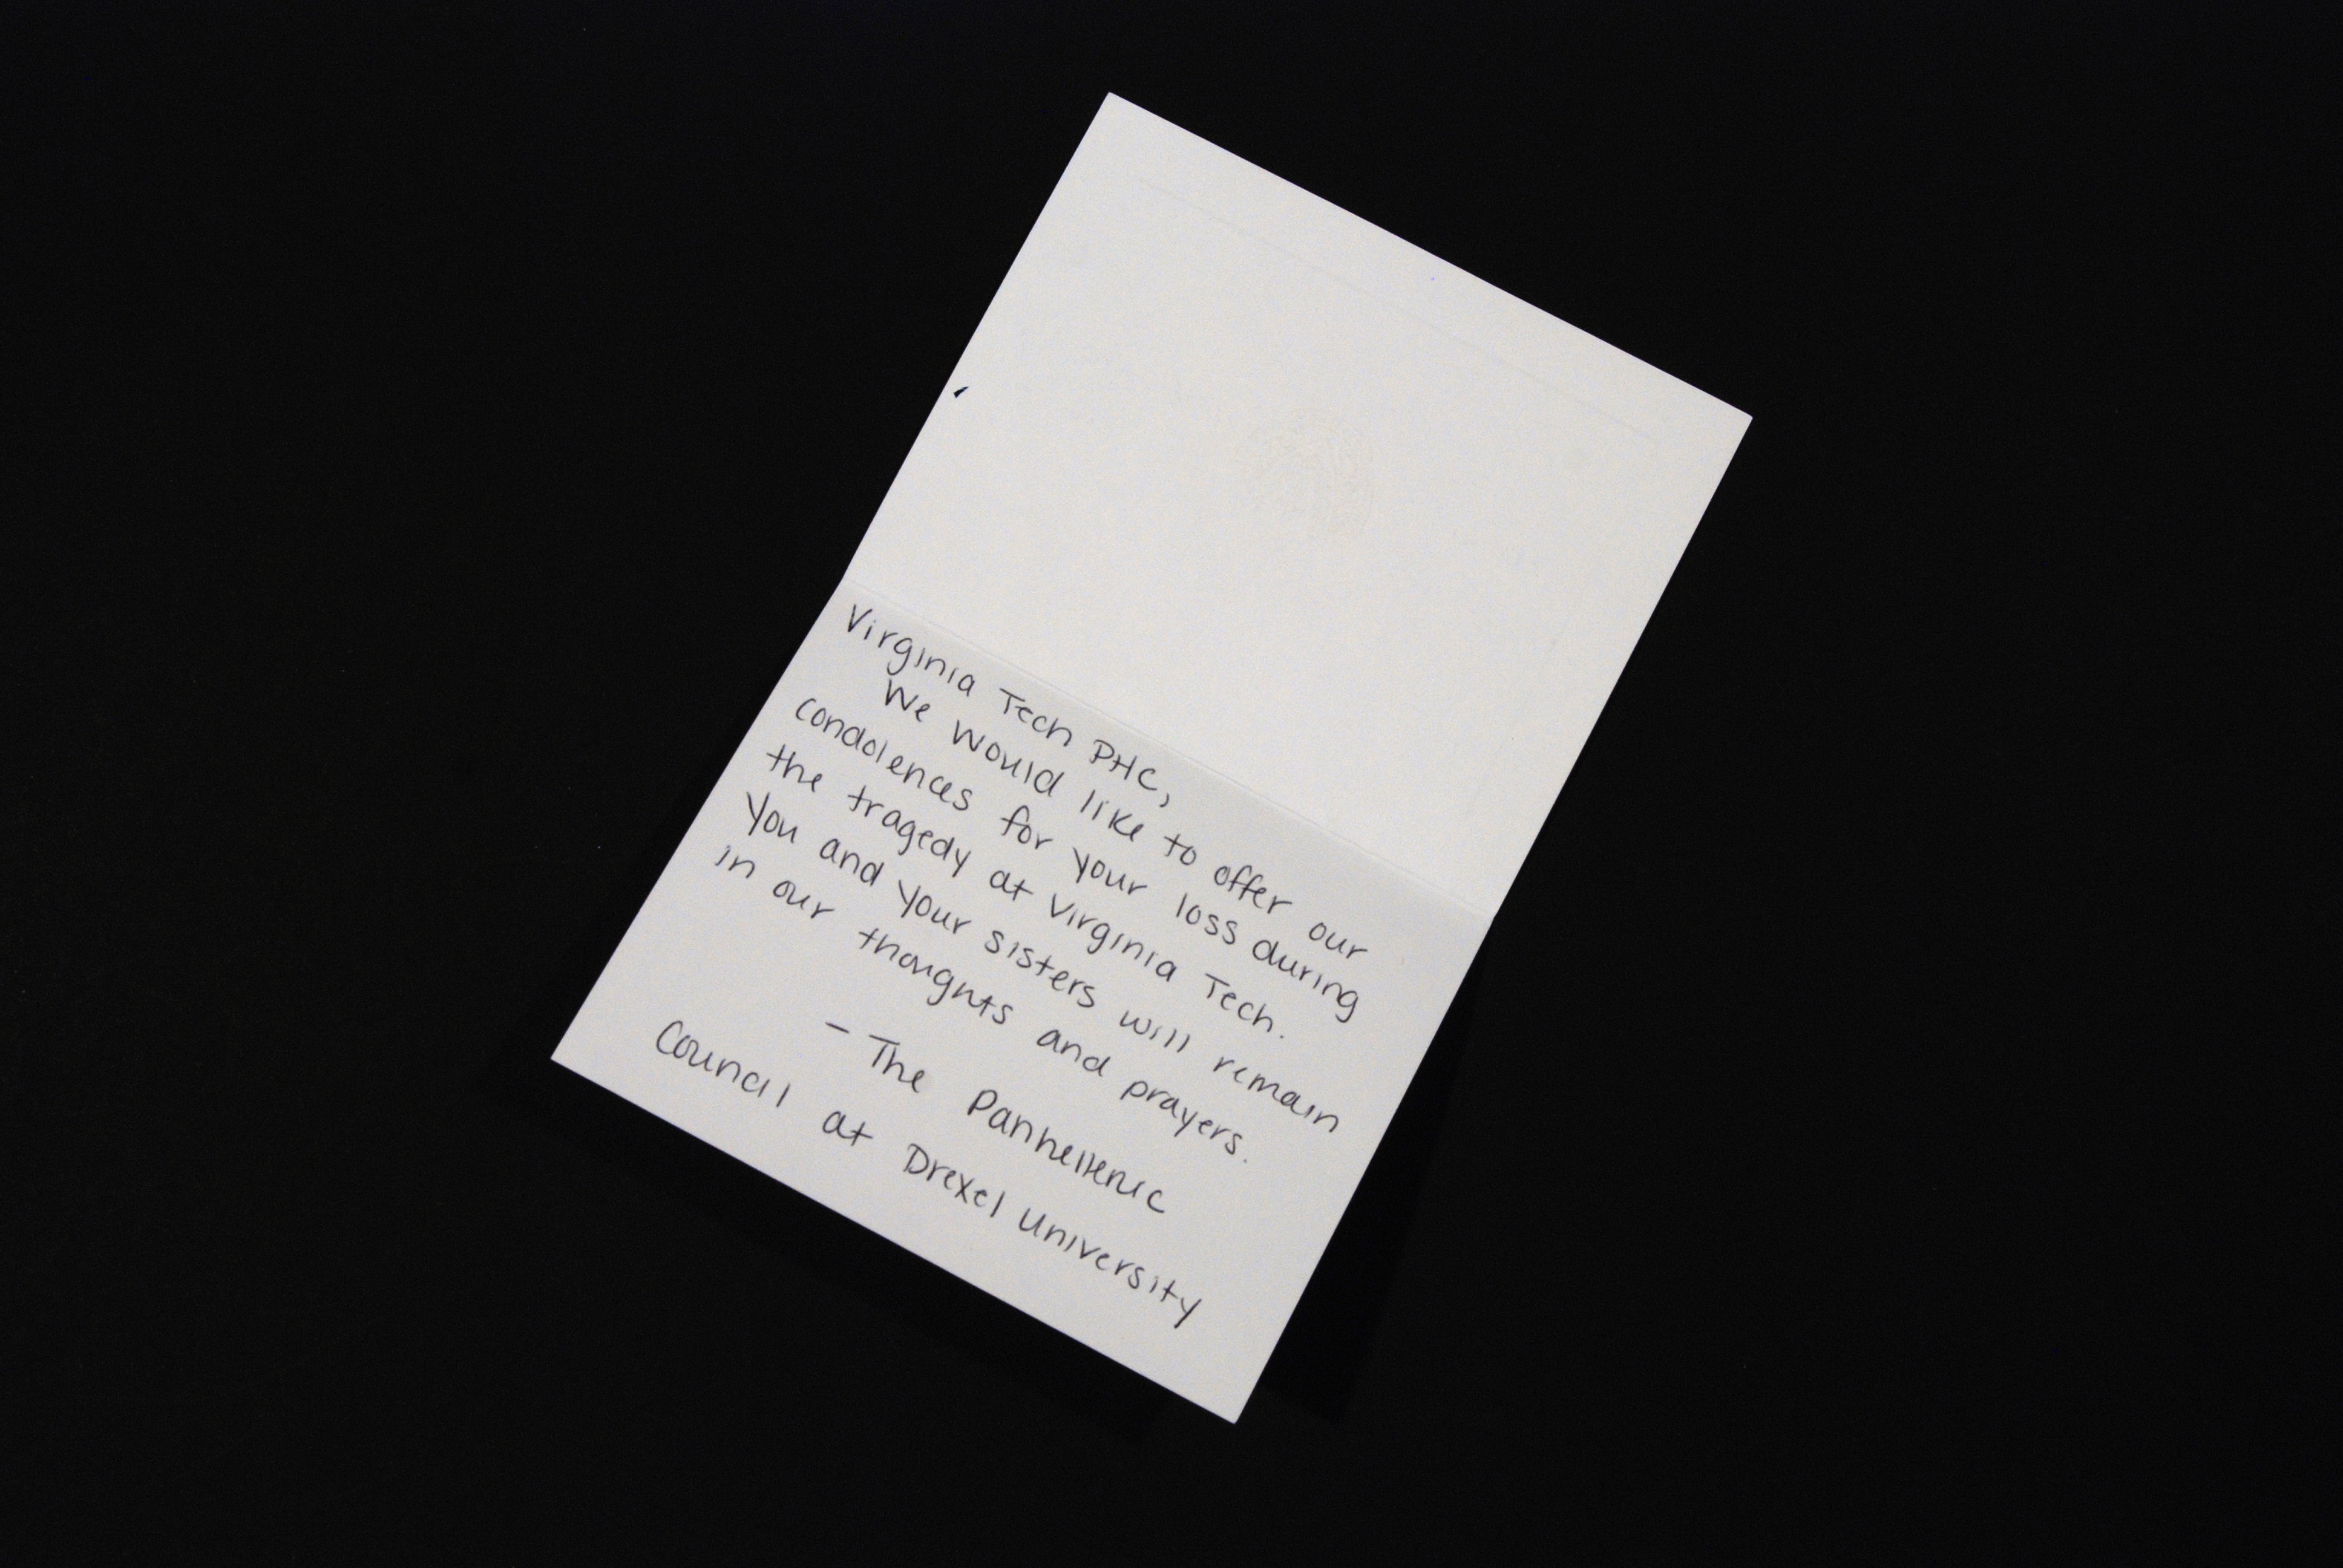 Virginia Tech PHC,
We would like to offer our
condolences for your loss during
the tragedy at Virginia Tech.
You and your sisters will remain
in our thoughts and prayers.
- The Panhellenic
Council at Drexel University